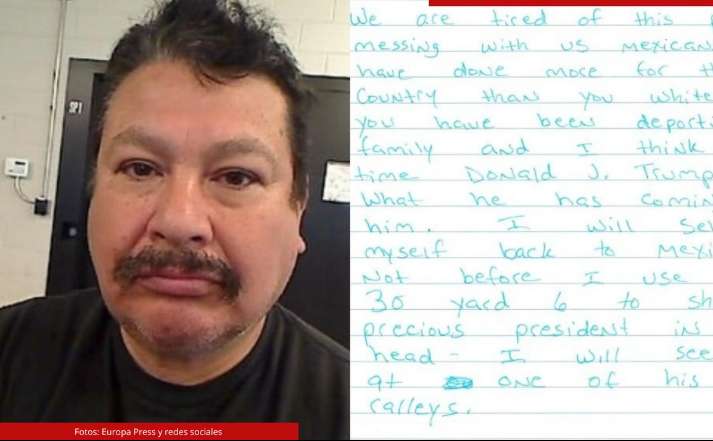 SP1
We are tired of this
messing with us mexican
have done more for th
country than you white
you have been deporti
family and I think
time Donald J. Trump
What he has comin
him. I will sel
myself back to mexi
Not before I use
30 yard 6 to sh
precious president in
head - I will see
at one of his
ralleys.
Fotos: Europa Press y redes sociales